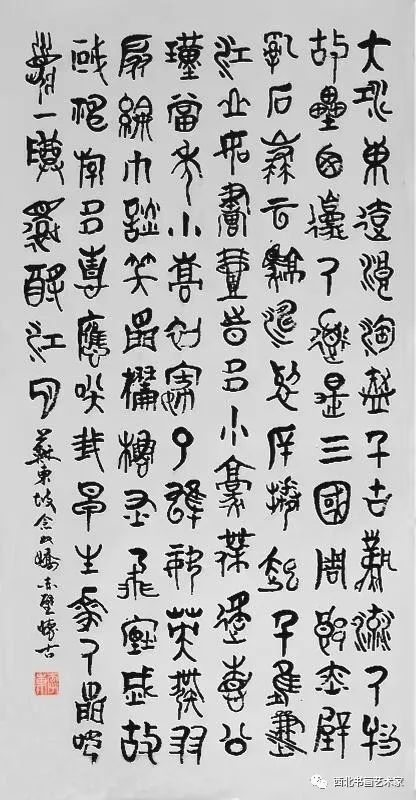 大江東去浪淘盡千古風流人物
故壘西邊人道是三國周郎赤壁
亂石崩云驚濤裂岸捲起千堆雪
江山如畫一時多少豪傑遙想公
瑾當年小喬初嫁了雄姿英發羽
扇綸巾談笑間檣櫓灰飛煙滅故
國神遊多情應笑我早生髮人間如
夢一樽還酹江月
蘇東坡念奴嬌赤壁懷古
西北书画艺术家